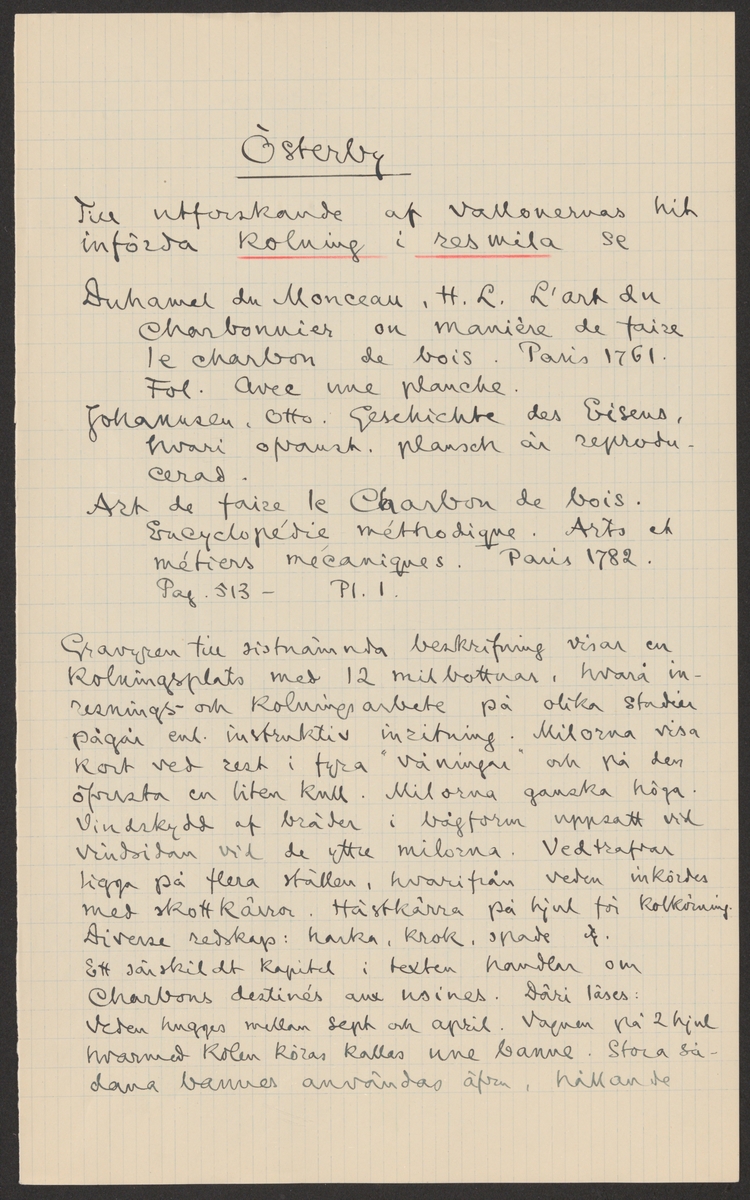 Österby
Till utforskande af vallonernas hit
införda kolning i resmila se
Duhamel du Monceau, H. L. L'art du
Charbonnier ou manière de faire
le charbon de bois. Paris 1761.
Fol. Avec une planche.
Johannsen, Otto. Geschichte des Eisens,
hvari ofvanst. plansch är reprodu-
cerad.
Art de faire le Charbon de bois.
Encyclopédie méthodique. Arts et
métiers mécaniques. Paris 1782.
Pag. 513 – Pl. 1.
Gravyren till sistnämnda beskrifning visar en
kolningsplats med 12 milbottnar, hvarå in-
resnings- och kolningsarbete på olika stadier
pågår enl. instruktiv inritning. Milorna visa
kort ved rest i fyra "våningar" och på den
öfversta en liten kull. Milorna ganska höga.
Vindskydd af bräder i bågform uppsatt vid
vindsidan vid de yttre milorna. Vedtrafvar
ligga på flera ställen, hvarifrån veden inkördes
med skottkärror. Hästkärra på hjul för kolkörning.
Diverse redskap: harka, krok, spade
Ett särskildt kapitel i texten handlar om
Charbons destinés aux usines. Däri läses:
Veden hugges mellan sept och april. Vagnen på 2 hjul
hvarmed kolen köras kallas une banne. Stora så-
dana bannes användas äfven, hållande